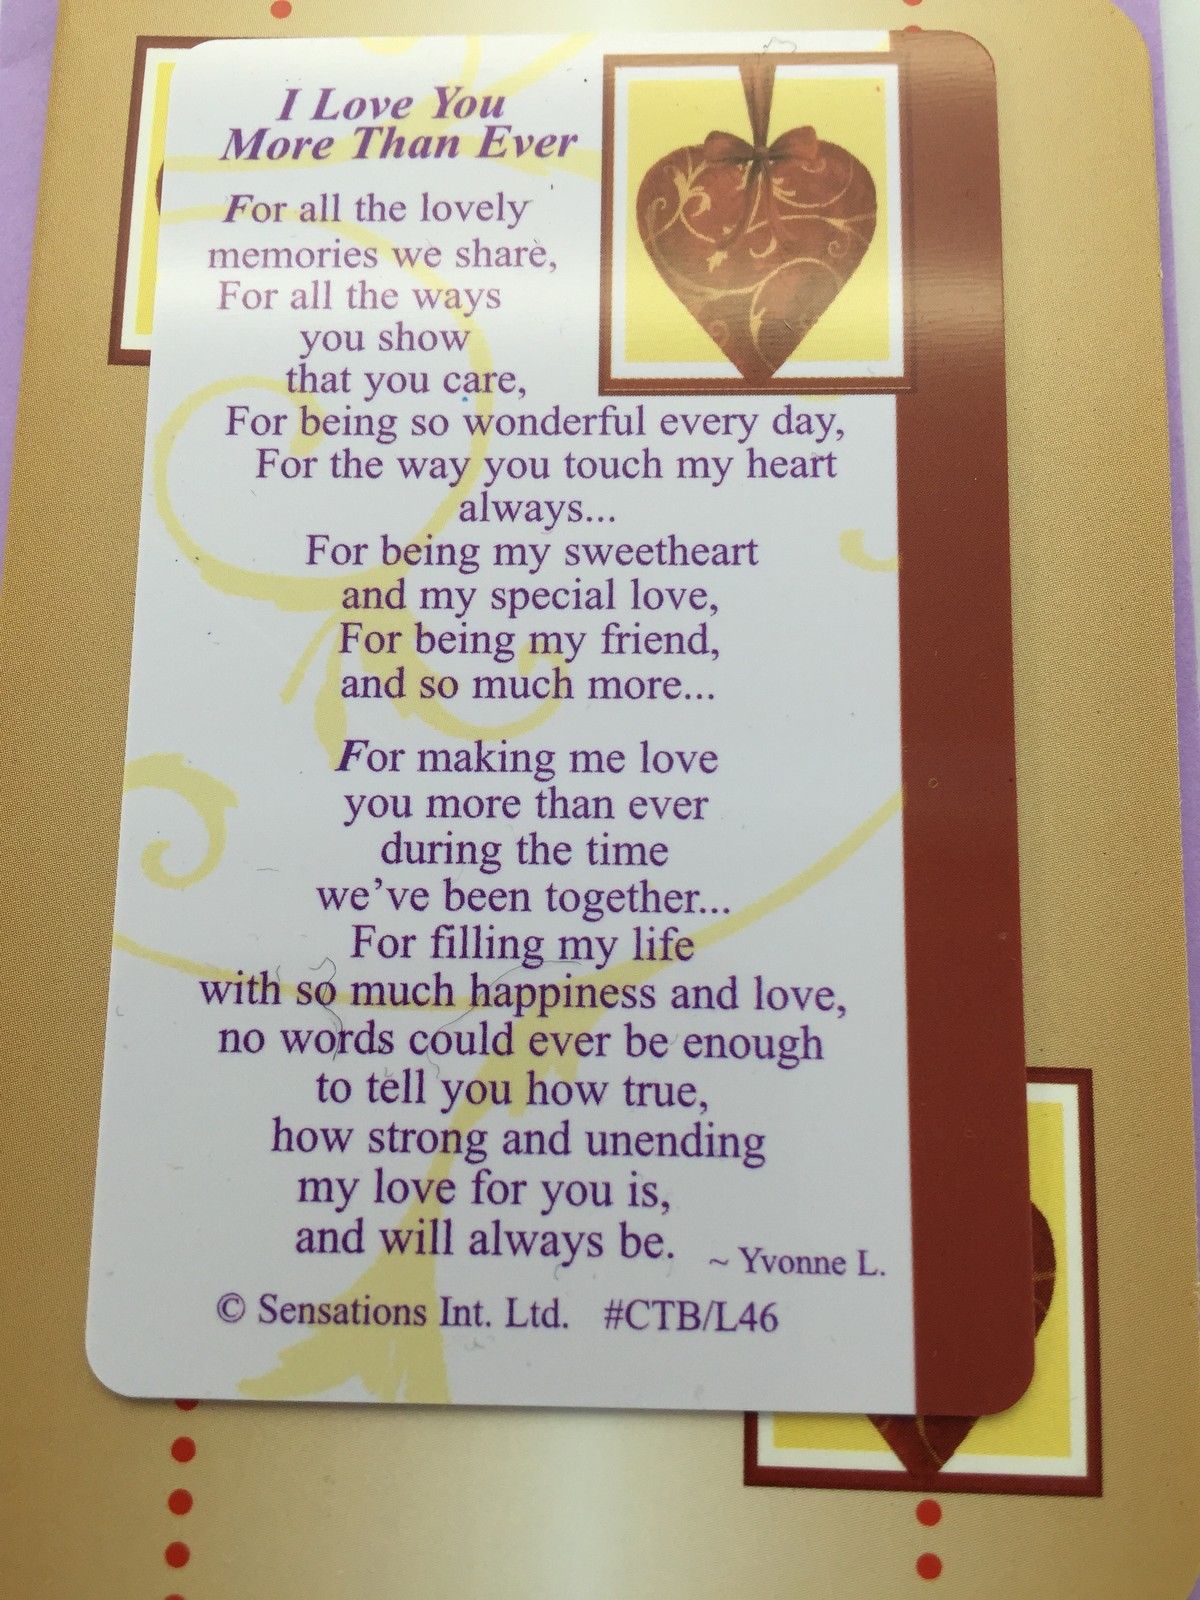 I Love You
More Than Ever
For all the lovely
memories we share,
For all the ways
you show
that you care,
For being so wonderful every day,
For the way you touch my heart
always...
For being my sweetheart
and my special love,
For being my friend,
and so much more...
For making me love
you more than ever
during the time
we've been together...
For filling my life
with so much happiness and love,
no words could ever be enough
to tell you how true,
how strong and unending
my love for you is,
and will always be.
~ Yvonne L.
© Sensations Int. Ltd. #CTB/L46